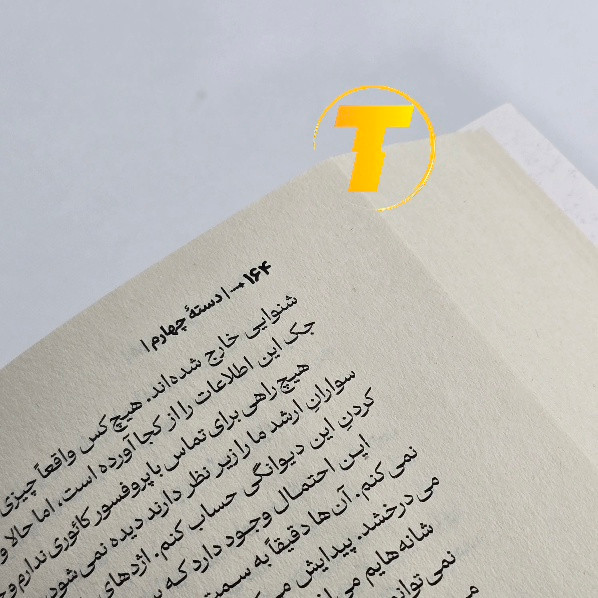 T
۱۶۴ → | دستهٔ چهارم |
شنوایی خارج شده‌اند. هیچ‌کس واقعاً چیزی
جک این اطلاعات را از کجا آورده است، اما حالا و
هیچ راهی برای تماس با پروفسور کائوری ندارم و
سوارانِ ارشد ما را زیر نظر دارند دیده نمی‌شود.
کردنِ این دیوانگی حساب کنم. اژدهای
این احتمال وجود دارد که
نمی‌کنم. آن‌ها دقیقاً به سمت
می‌درخشد. پیدایش
شانه‌هایم